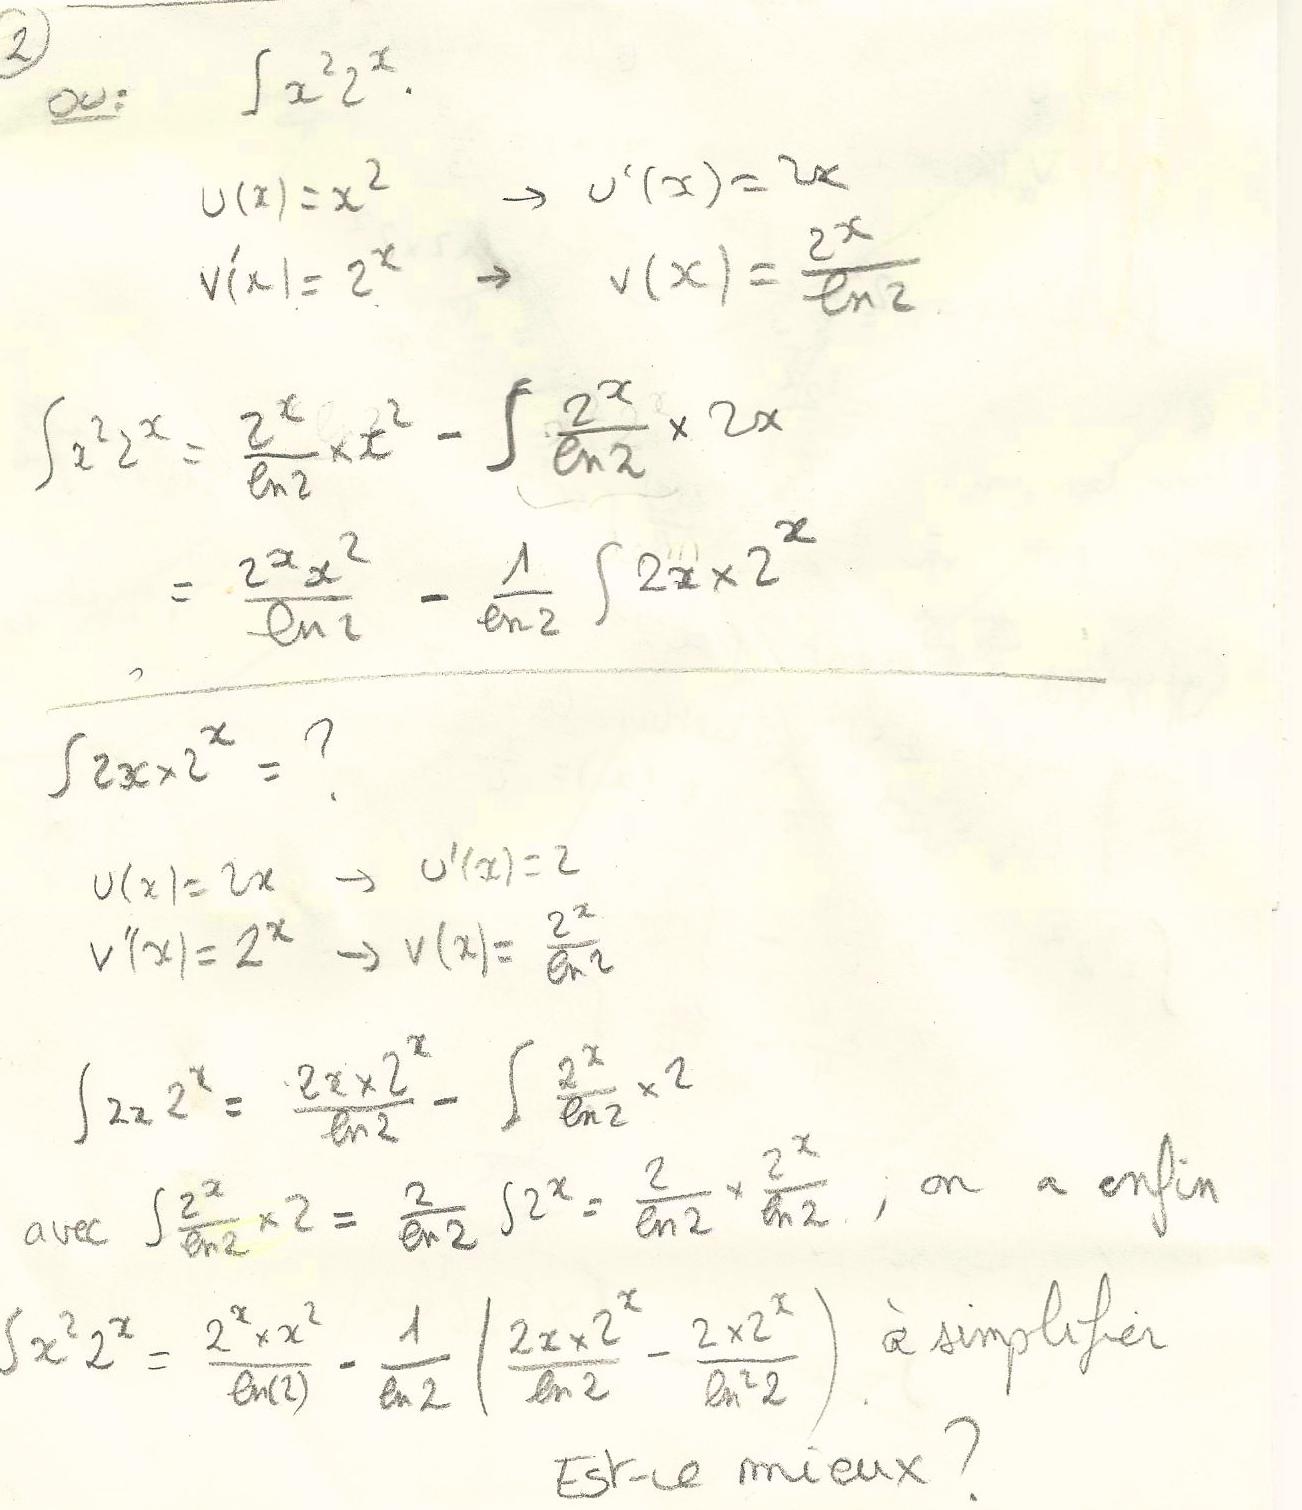 2
ou: ∫ x² 2ˣ.
u(x) = x² → u'(x) = 2x
v'(x) = 2ˣ → v(x) = 2ˣ/ln 2
∫ x² 2ˣ = 2ˣ/ln 2 × x² - ∫ 2ˣ/ln 2 × 2x
= 2ˣ x²/ln 2 - 1/ln 2 ∫ 2x × 2ˣ
∫ 2x × 2ˣ = ?
u(x) = 2x → u'(x) = 2
v'(x) = 2ˣ → v(x) = 2ˣ/ln 2
∫ 2x 2ˣ = 2x × 2ˣ/ln 2 - ∫ 2ˣ/ln 2 × 2
avec ∫ 2ˣ/ln 2 × 2 = 2/ln 2 ∫ 2ˣ = 2/ln 2 × 2ˣ/ln 2 ; on a enfin
∫ x² 2ˣ = 2ˣ × x²/ln(2) - 1/ln 2 ( 2x × 2ˣ/ln 2 - 2 × 2ˣ/ln² 2 ) à simplifier
Est-ce mieux ?